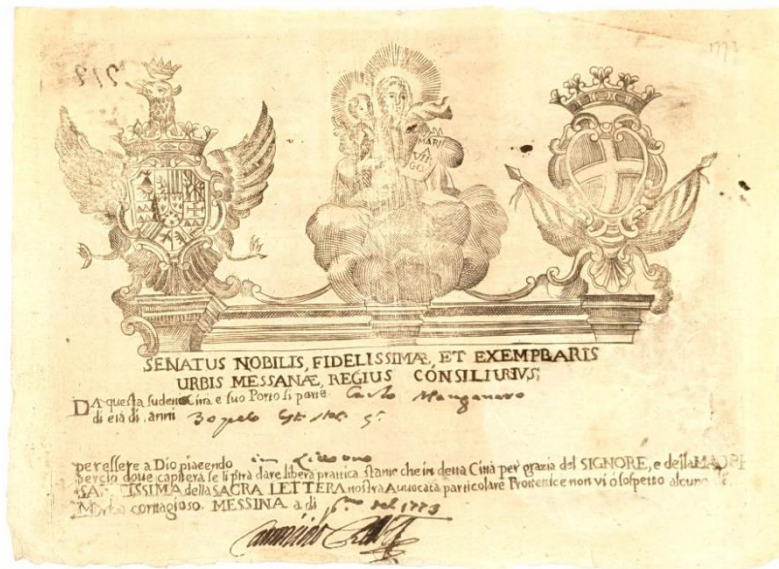 1773
217
MARI
VIR
GO
SENATUS NOBILIS, FIDELISSIMÆ, ET EXEMPLARIS
URBIS MESSANÆ, REGIUS CONSILIURIVS,
DA questa sudetta Cità e suo Porto si parte Carlo Manganaro
di età di anni 30 pelo
per essere a Dio piacendo in
perciò dove capiterà se li potrà dare libera prattica stante che in detta Città per grazia del SIGNORE, e della MADRE
SA TISSIMA della SAGRA LETTERA nostra Auvocata particolare Protettrice non vi ò sospetto alcuno di
Morbo contagioso. MESSINA a di del 1773